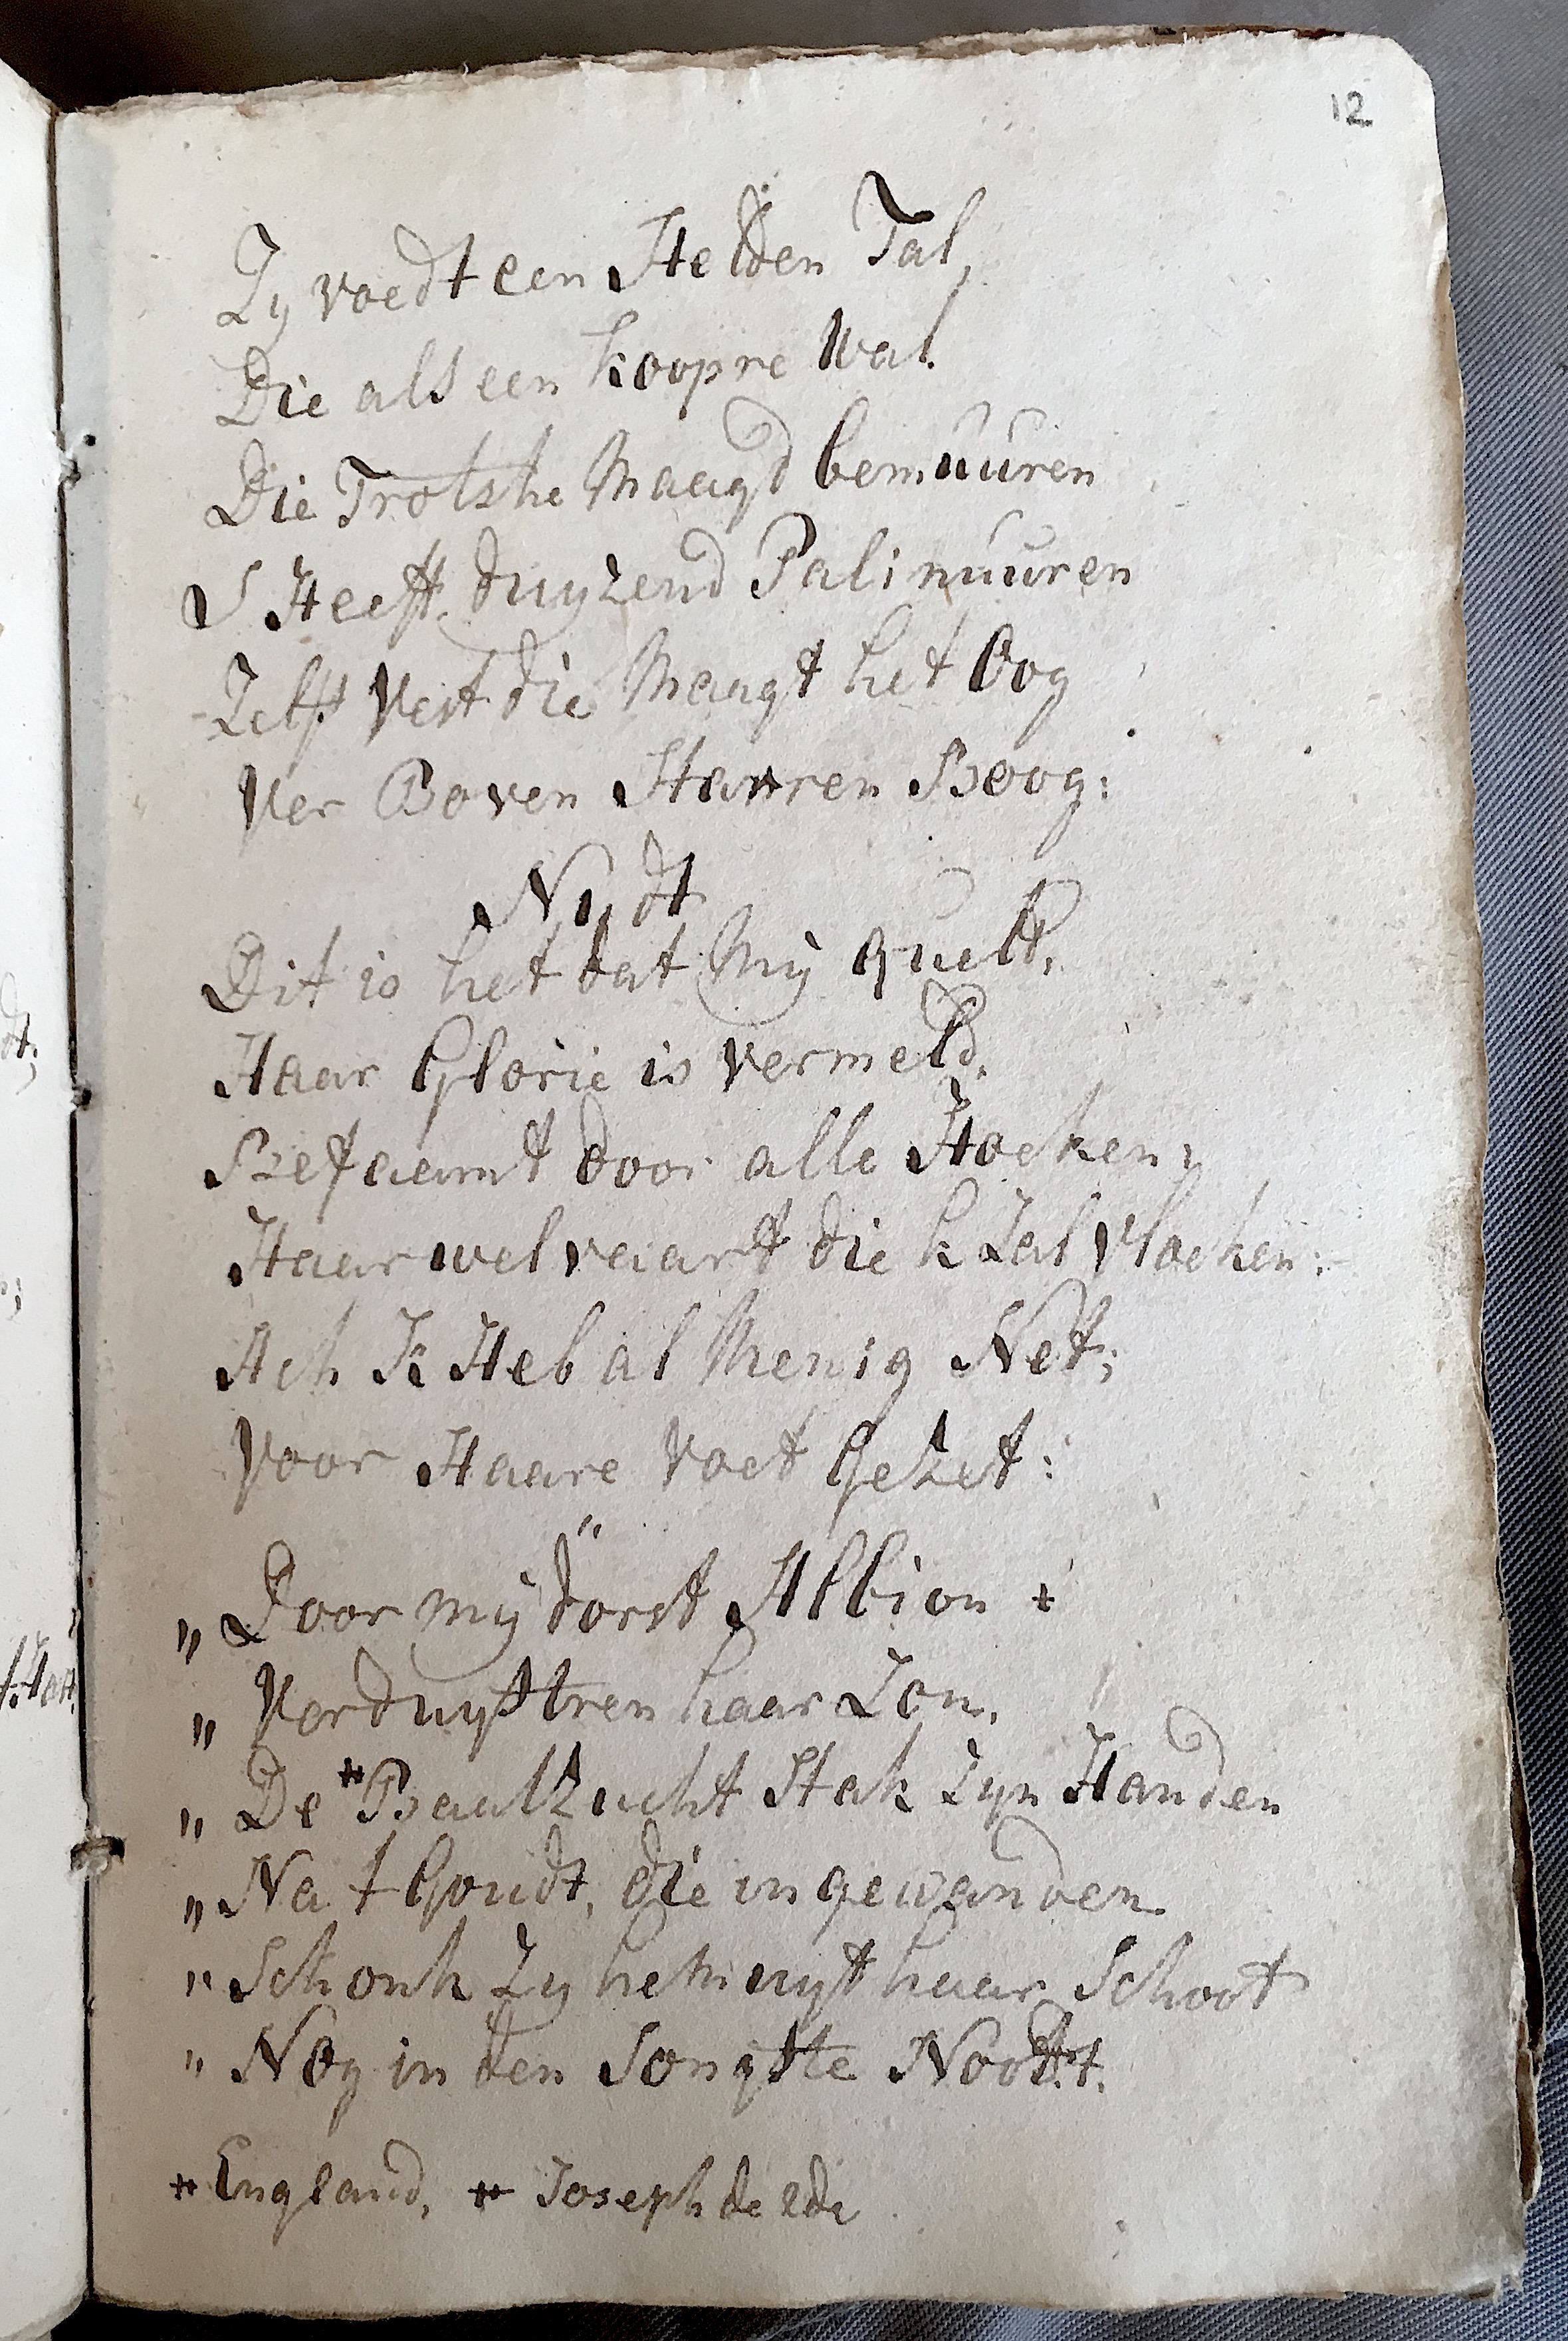 12
Zy voedt een Helden Tal,
Die als een koopre Wal.
Die Trotshe Maagd bemuuren
S Heeft duyzend Palinuuren
Zelft Vest die Maagt het Oog
Ver Boven Starren Boog:
Nydt
Dit is het dat Mij Quelt,
Haar Glorie is vermeld,
Befaamt door alle Hoeken;
Haar welvaardt die k Zal Vloeken:
Ach Ik Heb al Menig Net;
Voor Haare Voet Gezet:
"
„ Door mij dorst Albion *
„ Verduystren haar Zon,
„ De * Baalzucht Stak Zyn Handen
„ Na t Goudt, die ingewanden
" Schonk Zy hem uyt haar Schoot
" Nog in den Jongste Noodt.
* England, * Joseph de 2de